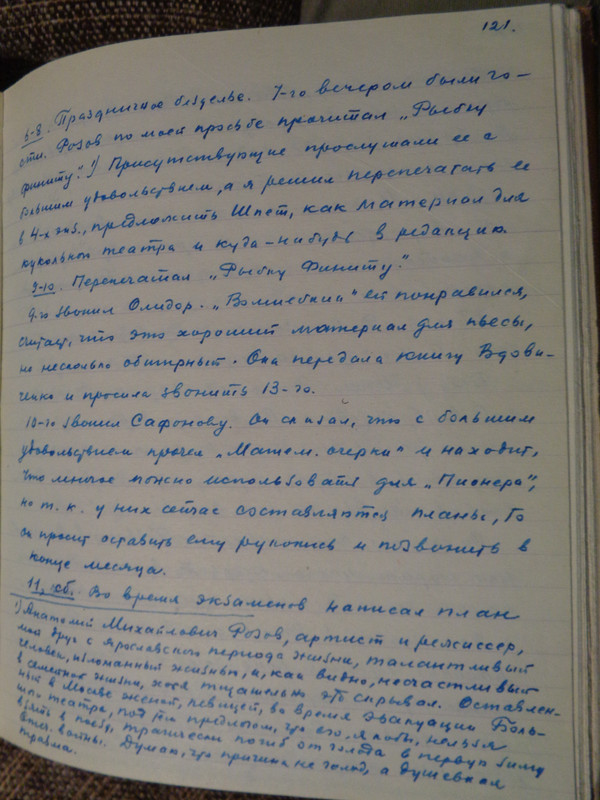 121.
6-8. Праздничное безделье. 7-го вечером были го-
сти. Розов по моей просьбе прочитал „Рыбку
Финиту".¹) Присутствующие прослушали ее с
большим удовольствием, а я решил перепечатать ее
в 4-х экз., предложить Шпет, как материал для
кукольного театра и куда-нибудь в редакцию.
9-10. Перепечатал „Рыбку Финиту".
9-го звонил Олидор. „Волшебник" ей понравился,
считает, что это хороший материал для пьесы,
но несколько обширный. Она передала книгу Вдови-
ченко и просила звонить 13-го.
10-го звонил Сафонову. Он сказал, что с большим
удовольствием прочел „Матем. очерки" и находит,
что многое можно использовать для „Пионера",
но т.к. у них сейчас составляются планы, то
он просит оставить ему рукопись и позвонить в
конце месяца.
11, сб. Во время экзаменов написал план
¹) Анатолий Михайлович Розов, артист и режиссер,
мой друг с Ярославского периода жизни, талантливый
человек, изломанный жизнью, и, как видно, несчастливый
в семейной жизни, хотя тщательно это скрывал. Оставлен-
ный в Москве женой, певицей, во время эвакуации Боль-
шого театра, под тем предлогом, что его, якобы, нельзя
взять в поезд, трагически погиб от голода в первую зиму
отеч. войны. Думаю, что причина не голод, а душевная
травма.